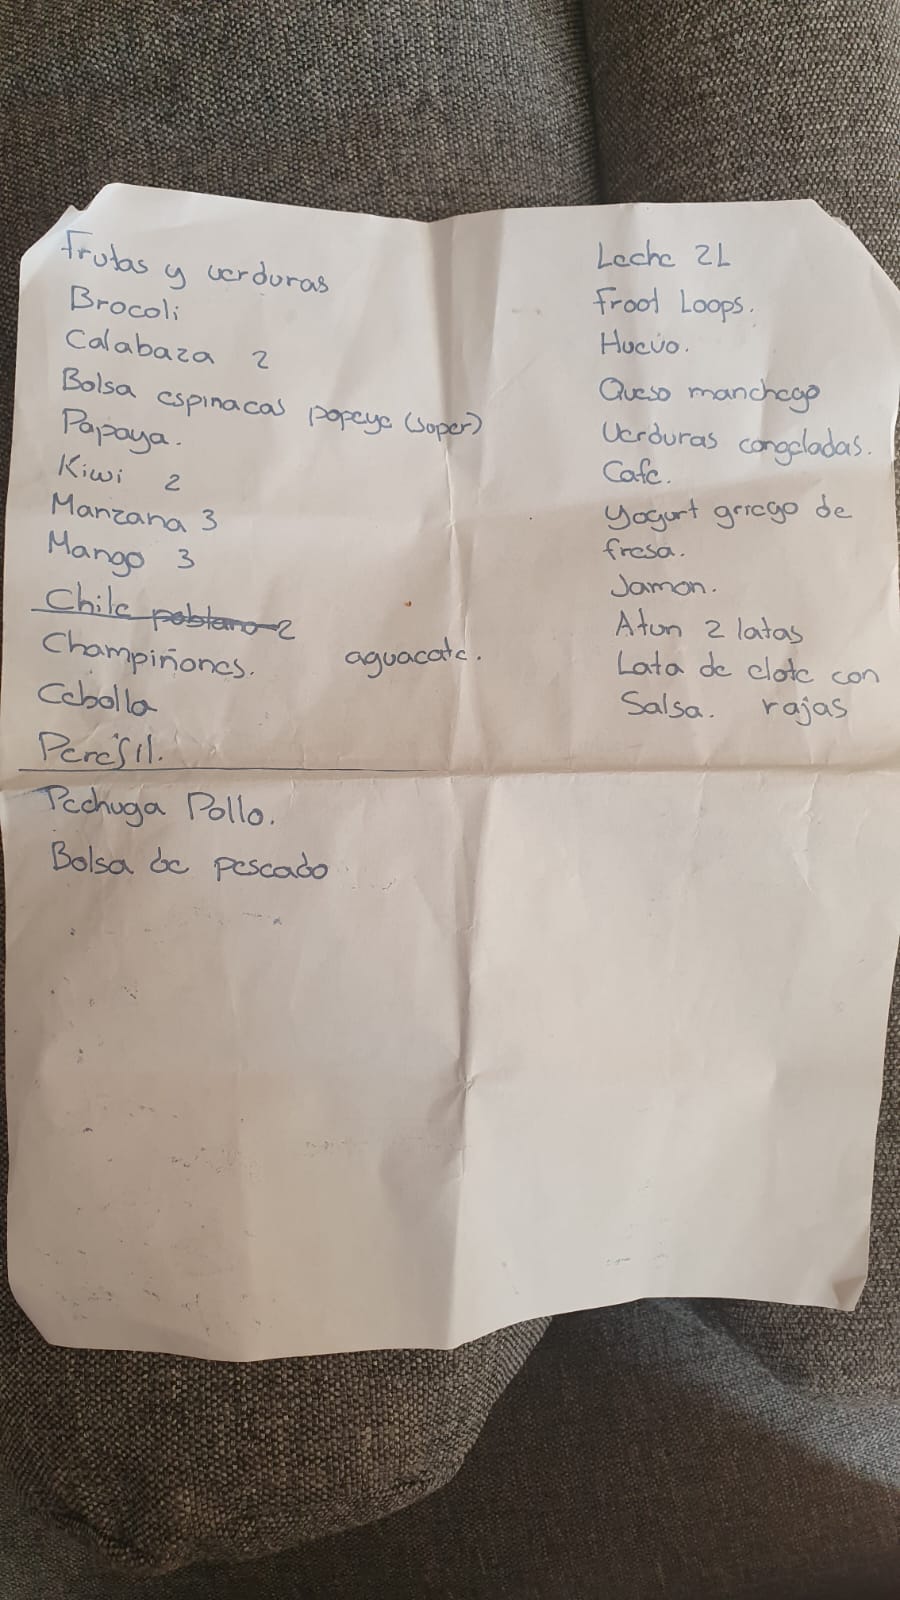 Frutas y verduras
Brocoli
Calabaza 2
Bolsa espinacas popeye (super)
Papaya.
Kiwi 2
Manzana 3
Mango 3
Chile poblano 2
Champiñones. aguacate.
Cebolla
Perejil.
Pechuga Pollo.
Bolsa de pescado
Leche 2L
Froot Loops.
Huevo.
Queso manchego
Verduras congeladas.
Cafe.
Yogurt griego de
fresa.
Jamon.
Atun 2 latas
Lata de elote con
Salsa. rajas